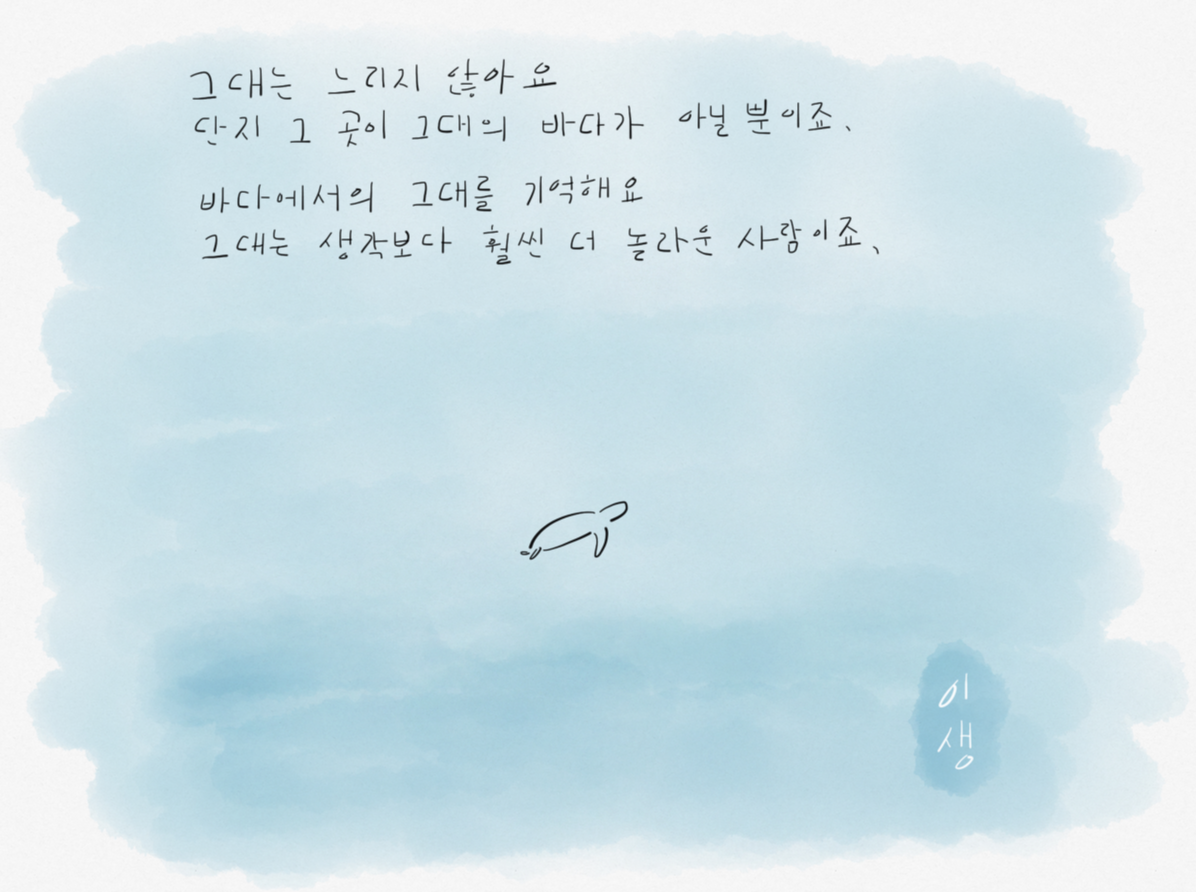 그대는 느리지 않아요
단지 그 곳이 그대의 바다가 아닐 뿐이죠.
바다에서의 그대를 기억해요
그대는 생각보다 훨씬 더 놀라운 사람이죠.
이
생